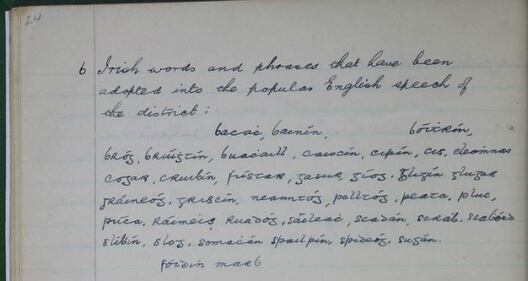 24
6 Irish words and phrases that have been
adopted into the popular English speech of
the district:
bacac, bainín, bóitrín,
bróg, brúigtín, buacaill, caiscín, cipín, cis, cleamnas
cogar, cruibín, fústar, gasur, gíog, gligín gliogar
gráineóg, griscín, neanntóg, palltóg, peata, pluc,
púca, ráiméis, ruadóg, sáileac, scadán, scráb, seabóid
slibín, slog, somacán spailpín, spideóg, sugán.
fóidín marb